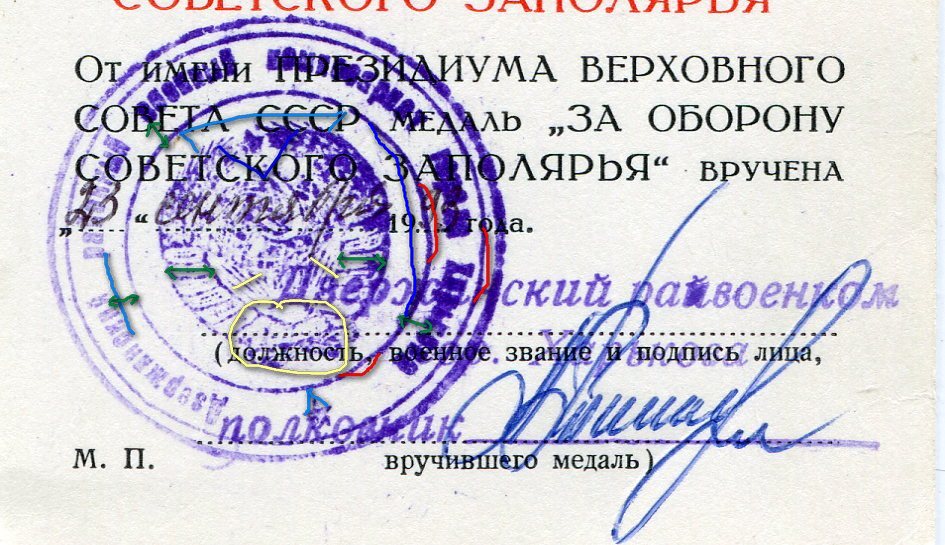 СОВЕТСКОГО ЗАПОЛЯРЬЯ
От имени ПРЕЗИДИУМА ВЕРХОВНОГО
СОВЕТА СССР медаль „ЗА ОБОРОНУ
СОВЕТСКОГО ЗАПОЛЯРЬЯ“ вручена
„23“ сентября 19 года.
Дзержинский райвоенком
г. Харькова
(должность, военное звание и подпись лица,
полковник
М. П. вручившего медаль)